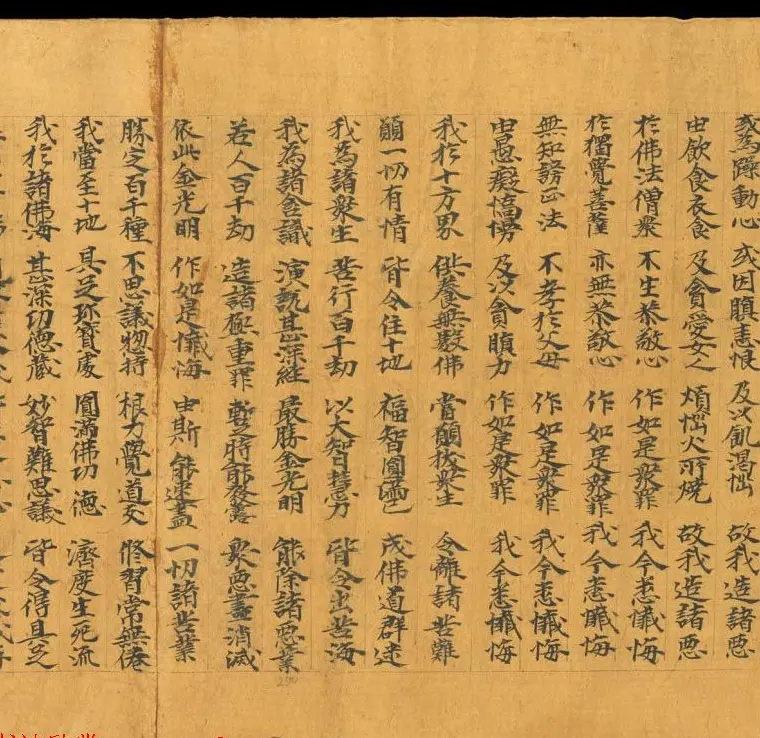 或為躁動心 或因瞋恚恨 及以飢渴惱 故我造諸惡
由飲食衣食 及貪愛女人 煩惱火所燒 故我造諸惡
於佛法僧衆 不生恭敬心 作如是衆罪 我今悉懺悔
於獨覺菩薩 亦無恭敬心 作如是衆罪 我今悉懺悔
無知謗正法 不孝於父母 作如是衆罪 我今悉懺悔
由愚癡憍慢 及以貪瞋力 作如是衆罪 我今悉懺悔
我於十方界 供養無數佛 當願拔衆生 令離諸苦難
願一切有情 皆令住十地 福智圓滿已 成佛道群迷
我為諸衆生 苦行百千劫 以大智慧力 皆令出苦海
我為諸含識 演說甚深經 最勝金光明 能除諸惡業
若人百千劫 造諸極重罪 暫時能發露 衆惡盡消滅
依此金光明 作如是懺悔 由斯能速盡 一切諸苦業
勝定百千種 不思議惣持 根力覺道支 修習常無倦
我當至十地 具足珎寶處 圓滿佛功德 濟度生死流
我於諸佛海 甚深功德藏 妙智難思議 皆令得具足